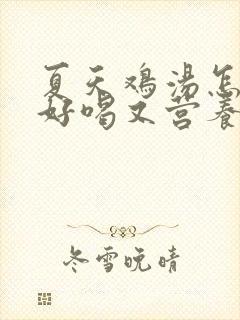 夏天鸡汤怎
好喝又营养
冬雪晚晴